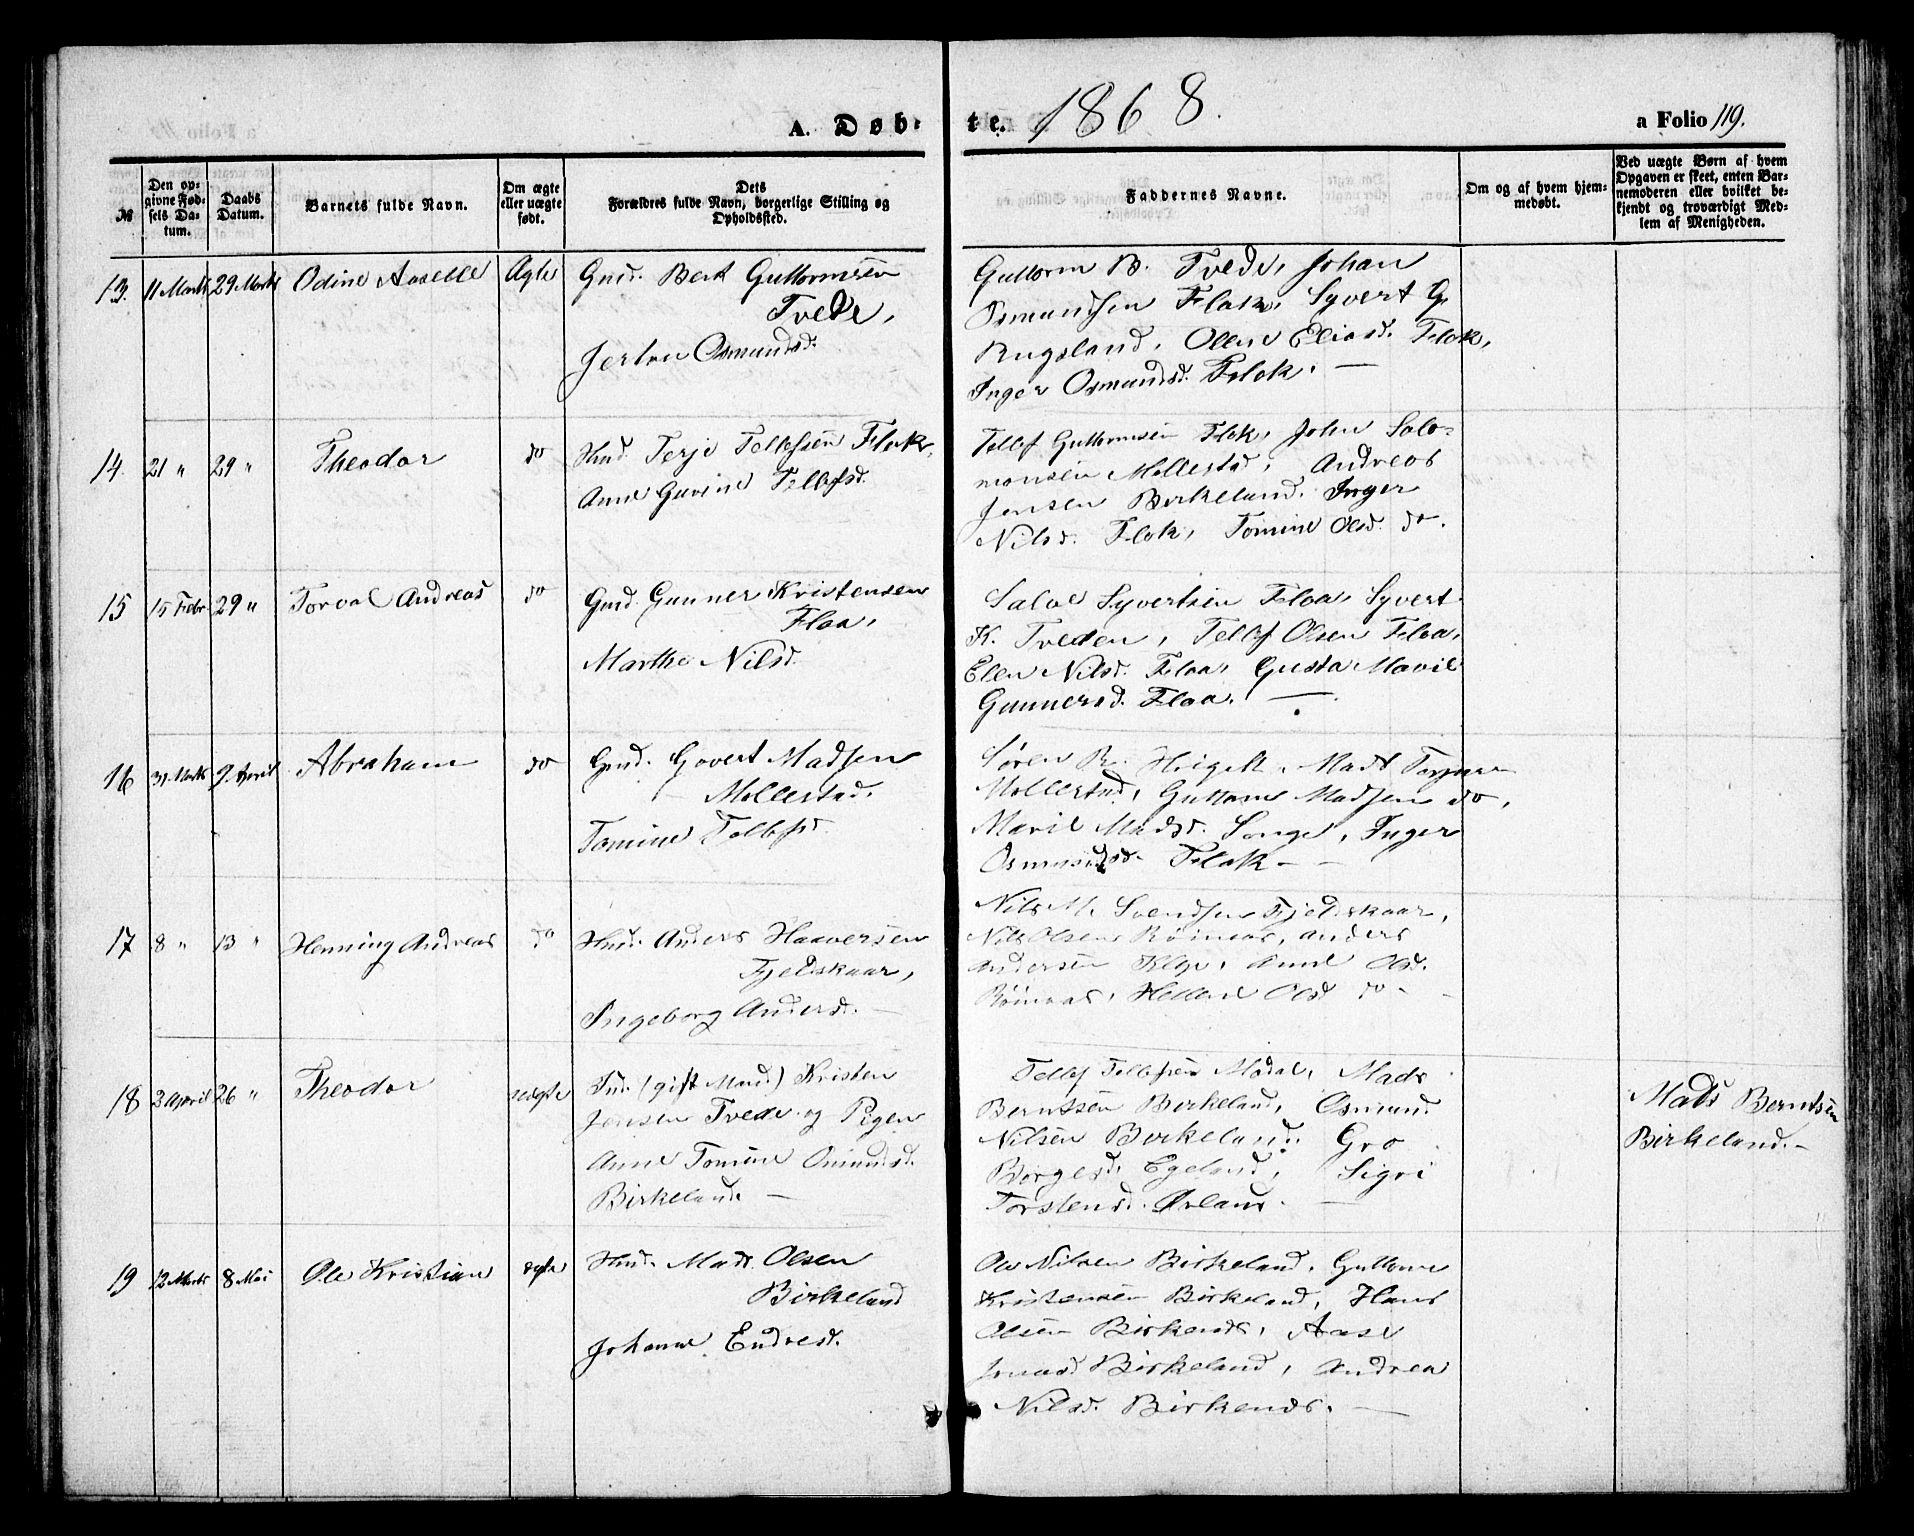 A. Døb-
te.
1868.
a Folio 119.
№
Den op-
givne Fød-
sels Da-
tum.
Daabs
Datum.
Barnets fulde Navn.
Om ægte
eller uægte
født.
Dets
Forældres fulde Navn, borgerlige Stilling og
Opholdssted.
Faddernes Navne.
Om og af hvem hjem-
medøbt.
Ved uægte Børn af hvem
Opgaven er skeet, enten Bar-
nemoderen eller hvilket be-
kjendt og troværdigt Med-
lem af Menigheden.
13. 11 Marts 29 Marts Odine Aaseble Ægte Gmd. Bert Guttormsen
Tvede,
Jertrue Osmundsd.
Guttorm B. Tvede, Johan
Osmundsen Flak, Syvert G.
Rugsland, Ollene Eliasd. Flak,
Inger Osmundsd. Flak. —
14. 21 " 29 " Theodor do Hmd. Terje Tellefsen Flak,
Anne Gurine Tellefsd.
Tellef Guttormsen Flak, John Salo-
monsen Mollestad, Andreas
Jensen Birkeland. Inger
Nilsd. Flak, Tomine Olsd. do.
15 15 Febr 29 " Torval Andreas do Gmd. Gunner Kristensen
Flaa,
Marthe Nilsd.
Salve Syvertsen Flaa, Syvert
K. Tveden, Tellef Olsen Flaa,
Elen Nilsd. Flaa, Gusta Marie
Gunnersd. Flaa. —
16 31 Marts 9 April Abraham do Gmd. Govert Madsen
Mollestad.
Tomine Tellefsd.
Søren R. Mads
Mollestad, Guttorm Madsen do,
Marie Madsd. Songe, Inger
Osmundsd. Flak —
17 8 " 13 " Henning Andreas do Hmd. Anders Haaversen
Fjeldskaar,
Ingeborg Andersd. —
Nils M. Svendsen Fjeldskaar,
Nils Olsen Røinaas, Anders
Andersen Anne Olsd.
Røinaas, Hellene Olsd do —
18 2 April 26 " Theodor uægte Ind. (gift Mand) Kristen
Jensen Tvede og Pigen
Anne Tomine Osmundsd.
Birkeland. —
Tellef Tellefsen Mødal, Mads
Berntsen Birkeland, Osmund
Nilsen Birkeland. Gro
Børgesd. Egeland, Sigri
Torstensd. —
Mads Berntsen
Birkeland. —
19 12 Marts 8 Mai Ole Kristian ægte Hmd. Mads Olsen
Birkeland
Johanne Endresd.
Ole Nilsen Birkeland, Guttorm
Kristensen Birkeland, Hans
Olsen Birkenes, Aase
Jonasd Birkeland, Andrea
Nilsd. Birkenes. —